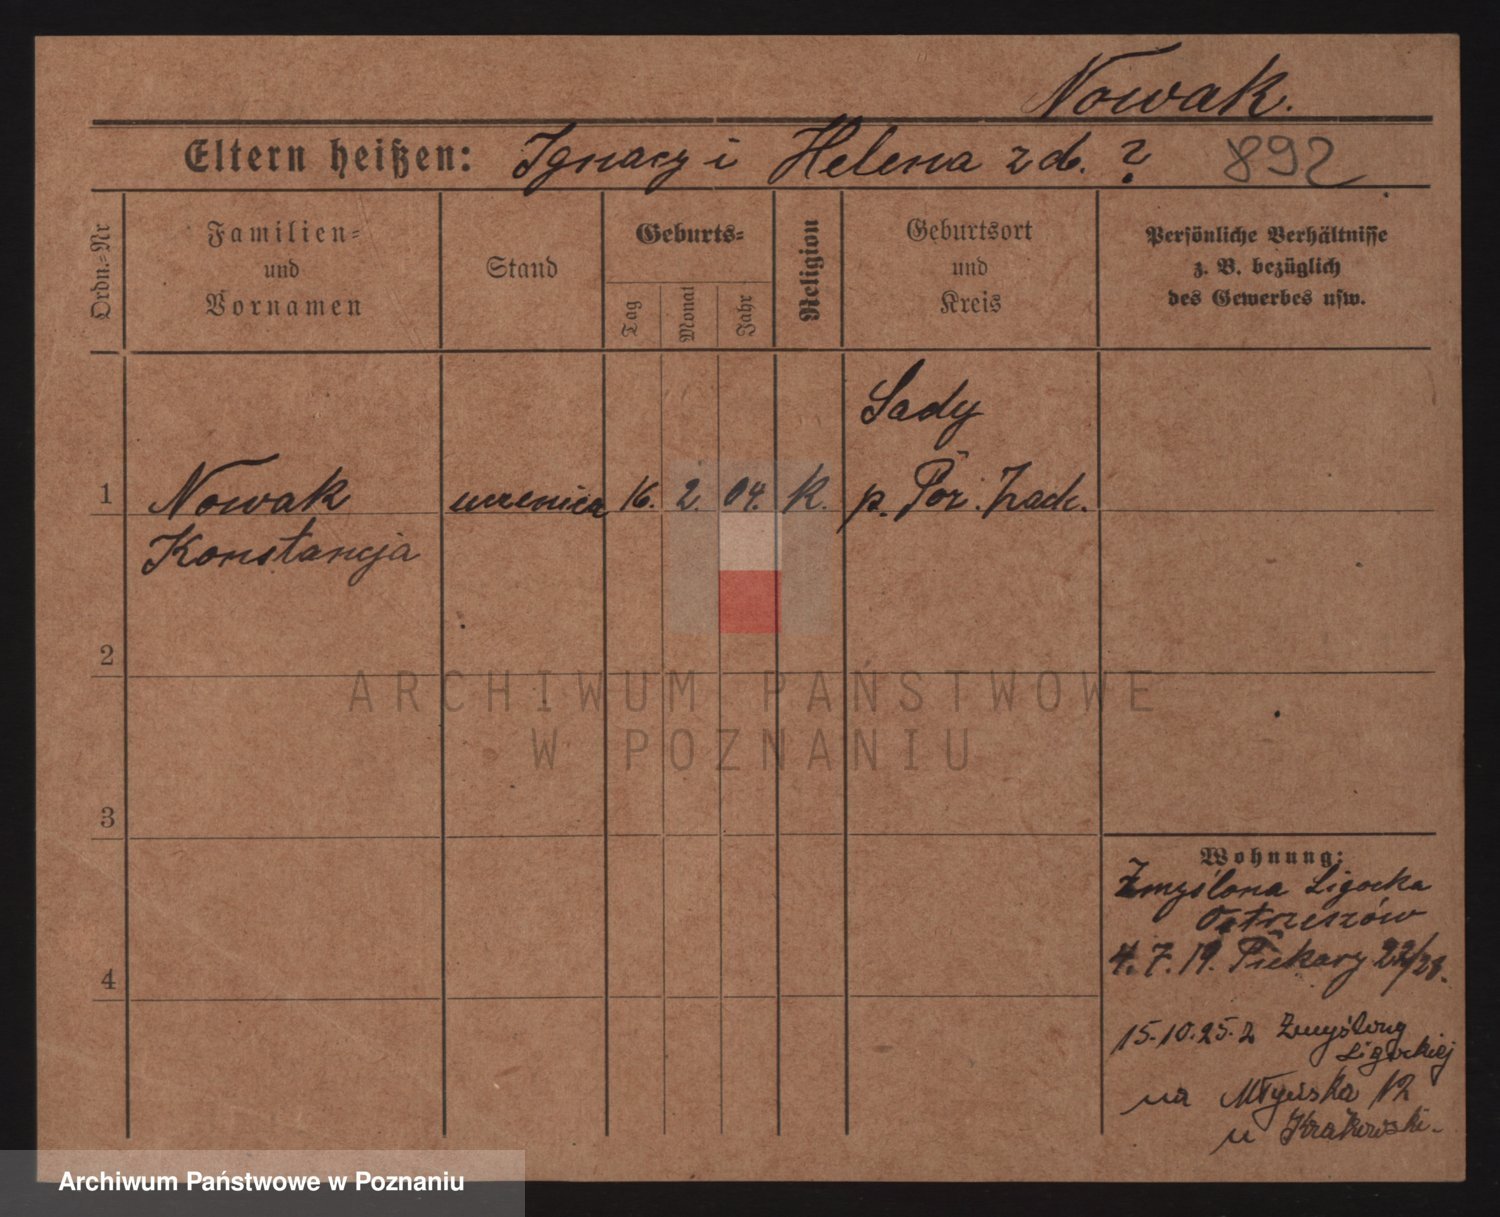 Nowak.
Eltern heißen: Ignacy i Helena z d. ? 892
Ordn.-Nr
Familien-
und
Vornamen
Stand
Geburts-
Tag
Monat
Jahr
Religion
Geburtsort
und
Kreis
Persönliche Verhältnisse
z. B. bezüglich
des Gewerbes usw.
Sady
1 Nowak uczenica 16. 2. 04. K. p. Poz. Zach.
Konstancja
2
ARCHIWUM PAŃSTWOWE
W POZNANIU
3
Wohnung:
Zmyślona Ligocka
Ostrzeszów
4. 7. 19. Piekary 22/23.
4
15.10.25. z Zmyślony
Ligockiej
na Młyńska 12
u Krakowski.
Archiwum Państwowe w Poznaniu